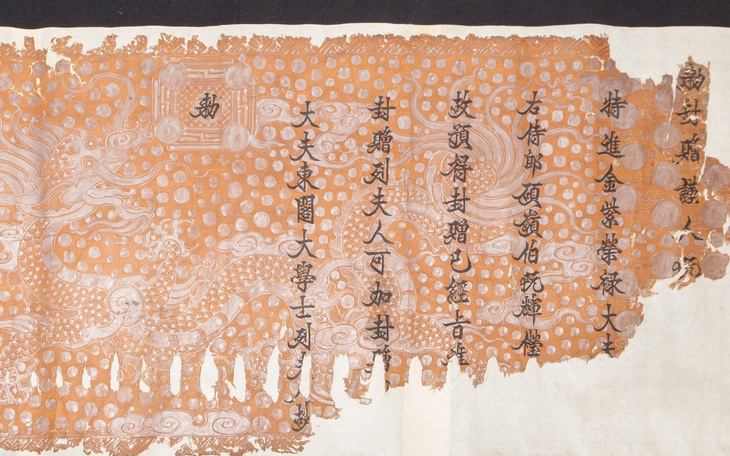 勑封贈謹人阮
特進金紫榮祿大
右侍郎碩嶺伯阮輝𠐓
故得封贈已經旨準
封贈列夫人可加封贈
大夫東閣大學士列夫人
勑